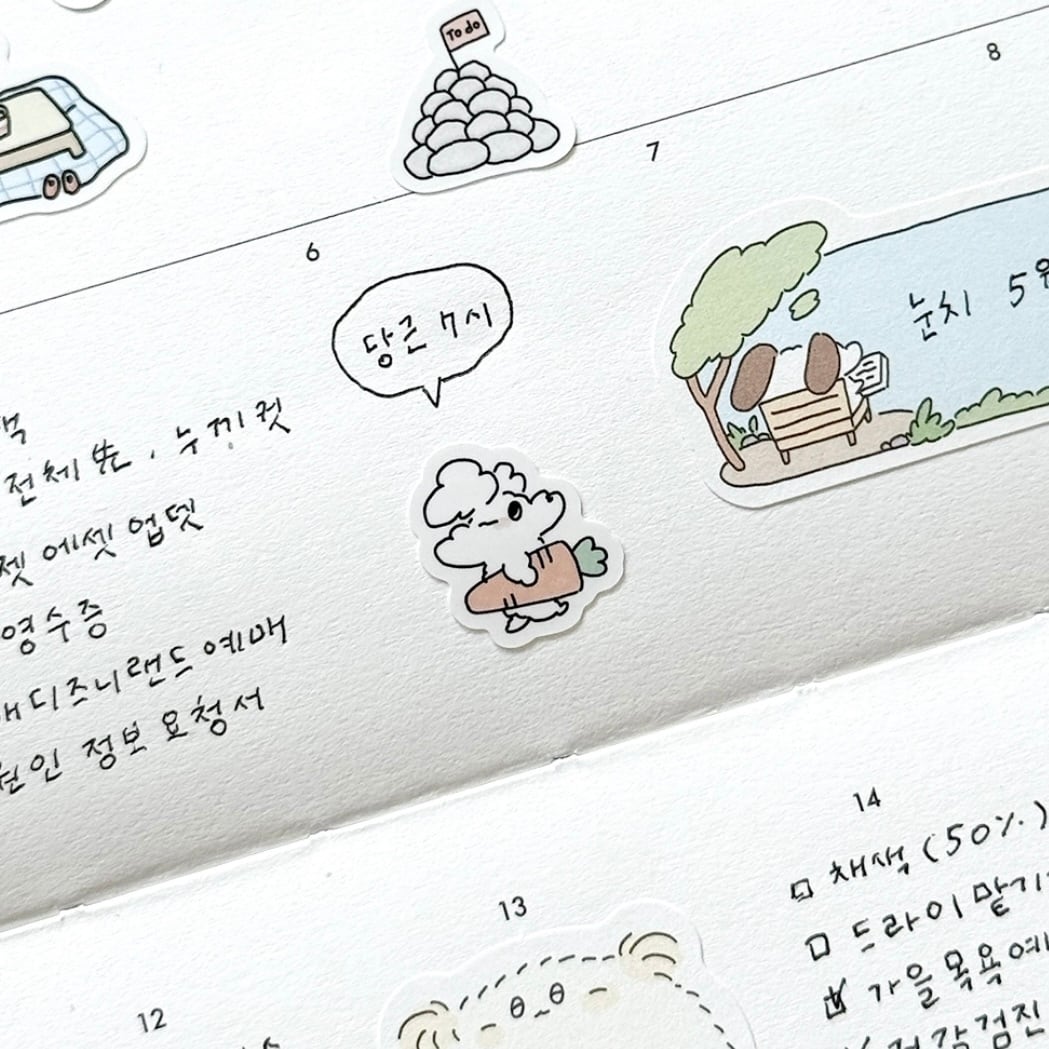 To do
8
7
6
당근 7시
눈치 5
전체 쏜, 누끼컷
에셋 업뎃
영수증
디즈니랜드 예매
원인 정보 요청서
14
채색 (50%)
드라이 맡기
가을 목욕
13
12